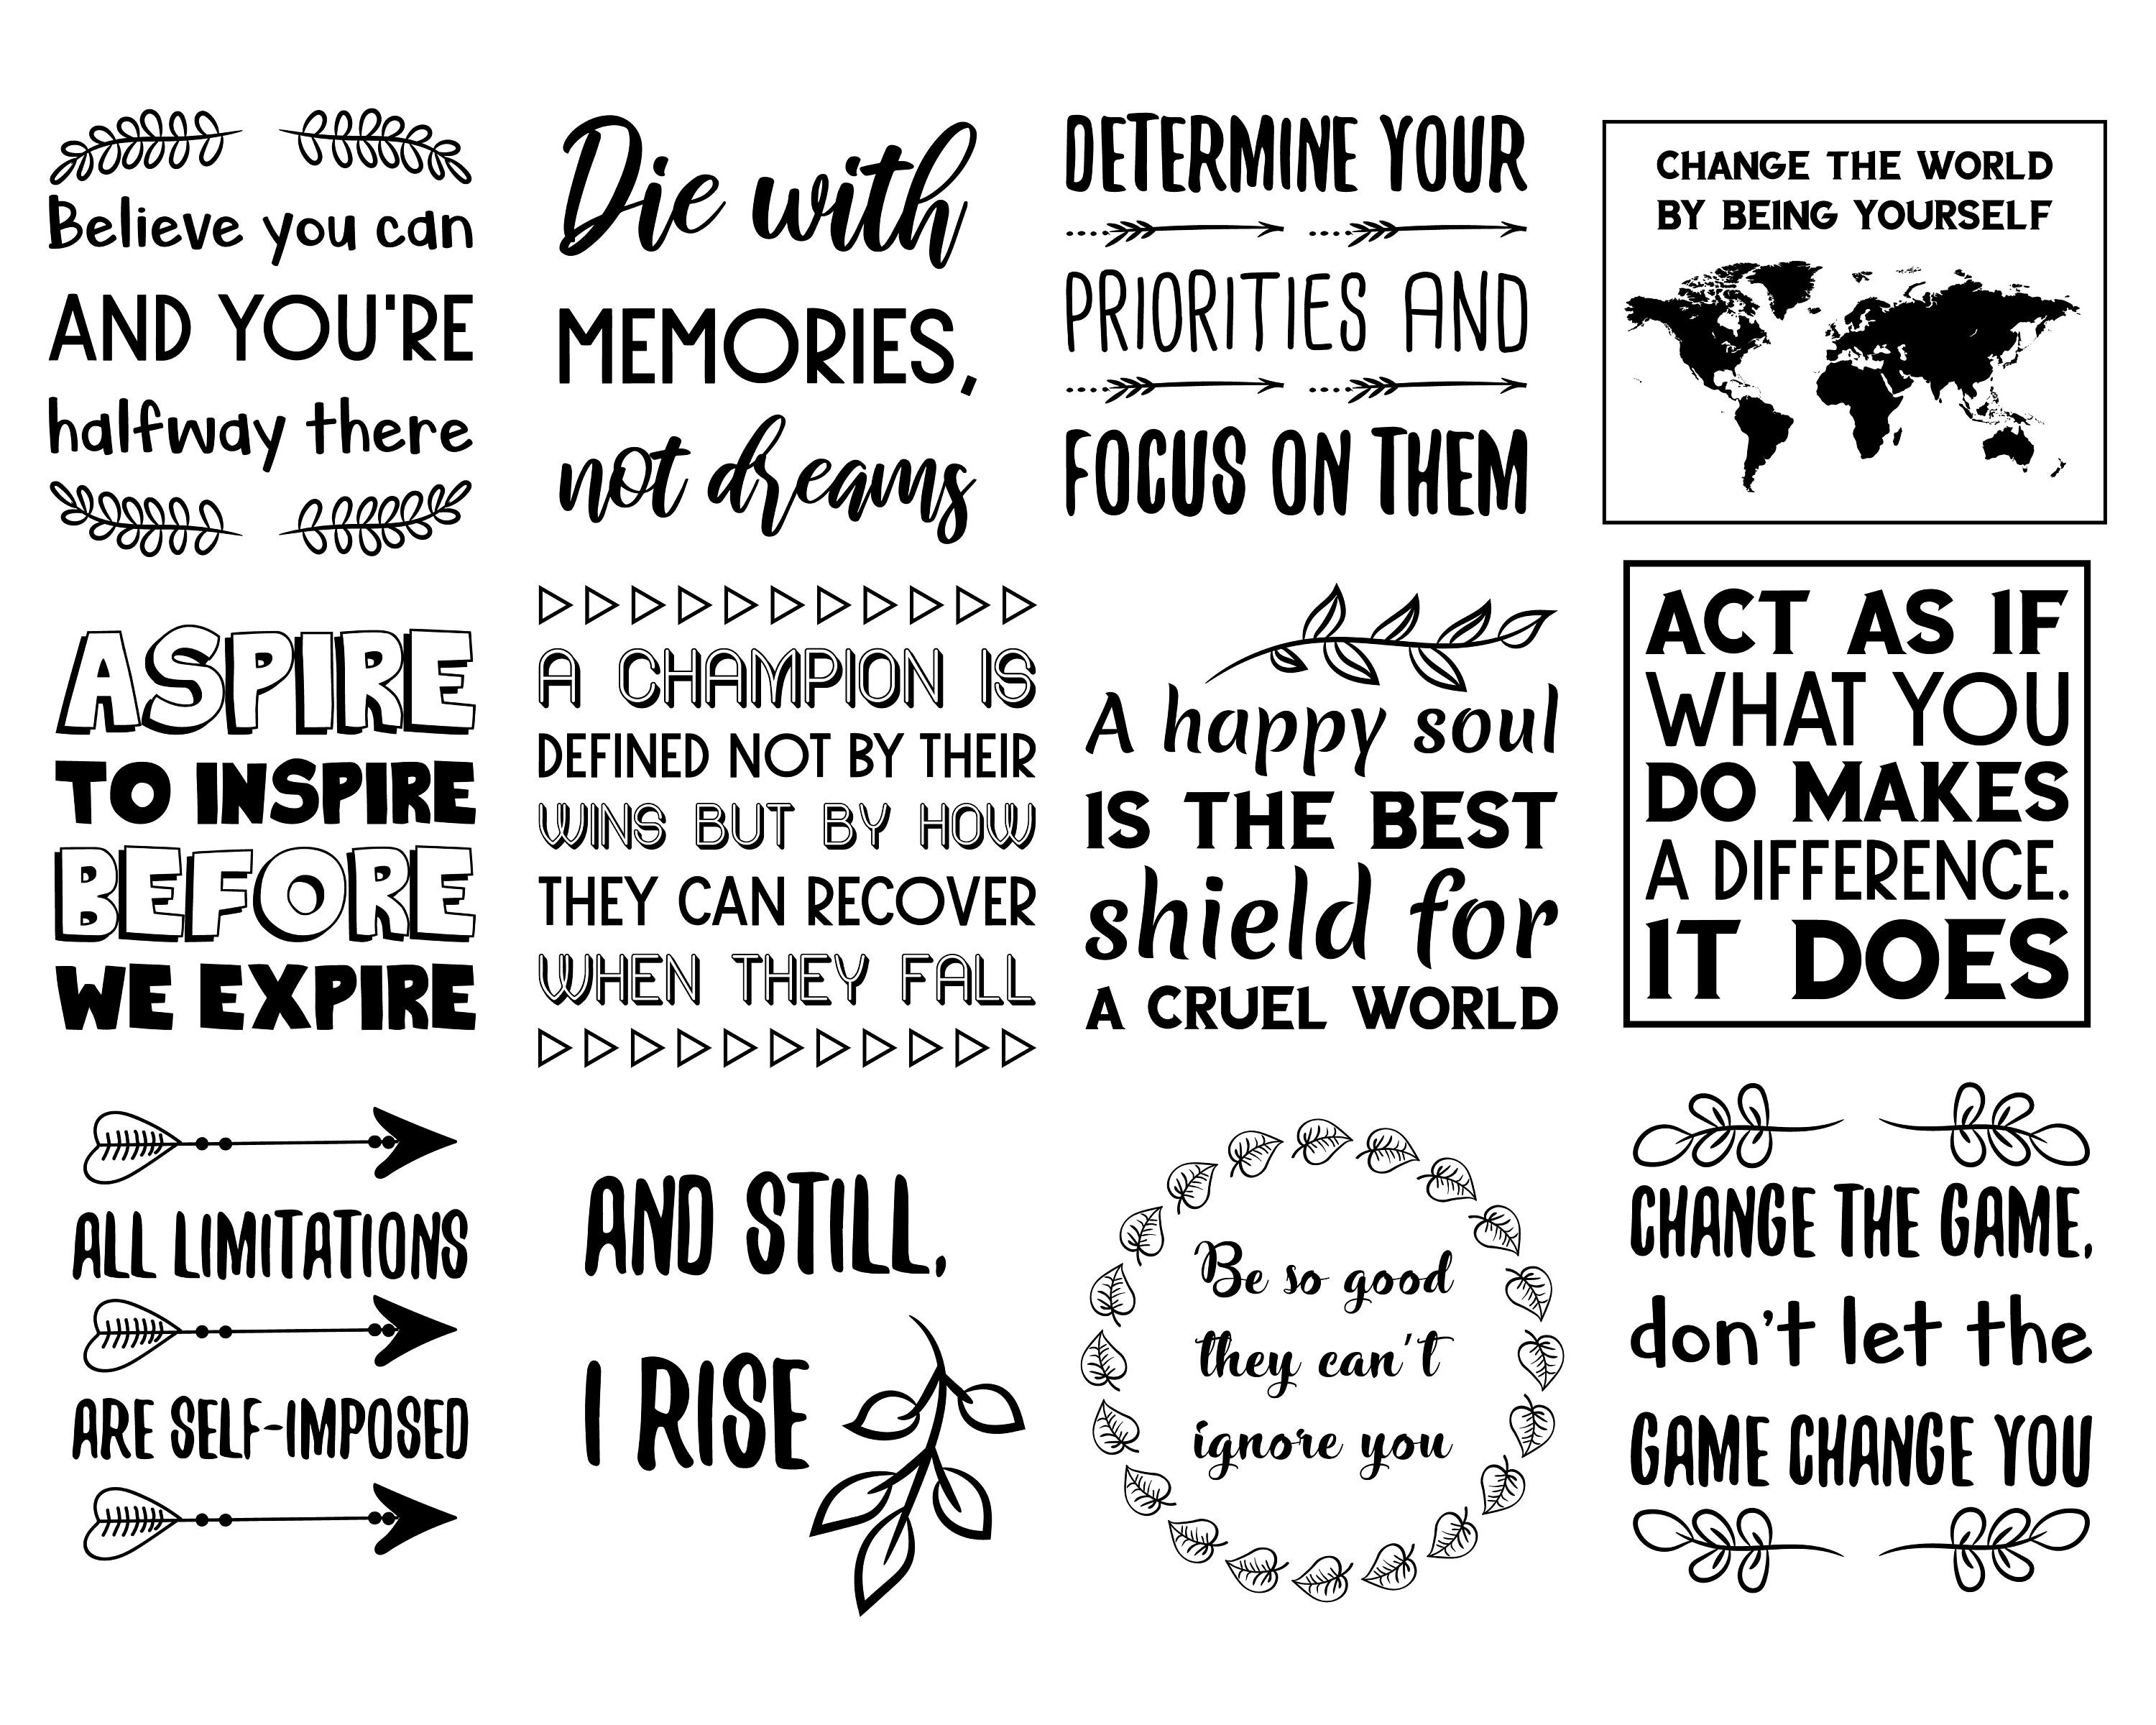 Believe you can
AND YOU'RE
halfway there
Die with
MEMORIES,
not dreams
DETERMINE YOUR
PRIORITIES AND
FOCUS ON THEM
CHANGE THE WORLD
BY BEING YOURSELF
ASPIRE
TO INSPIRE
BEFORE
WE EXPIRE
A CHAMPION IS
DEFINED NOT BY THEIR
WINS BUT BY HOW
THEY CAN RECOVER
WHEN THEY FALL
A happy soul
IS THE BEST
shield for
A CRUEL WORLD
ACT AS IF
WHAT YOU
DO MAKES
A DIFFERENCE.
IT DOES
ALL LIMITATIONS
ARE SELF-IMPOSED
AND STILL,
I RISE
Be so good
they can't
ignore you
CHANGE THE GAME,
don't let the
GAME CHANGE YOU